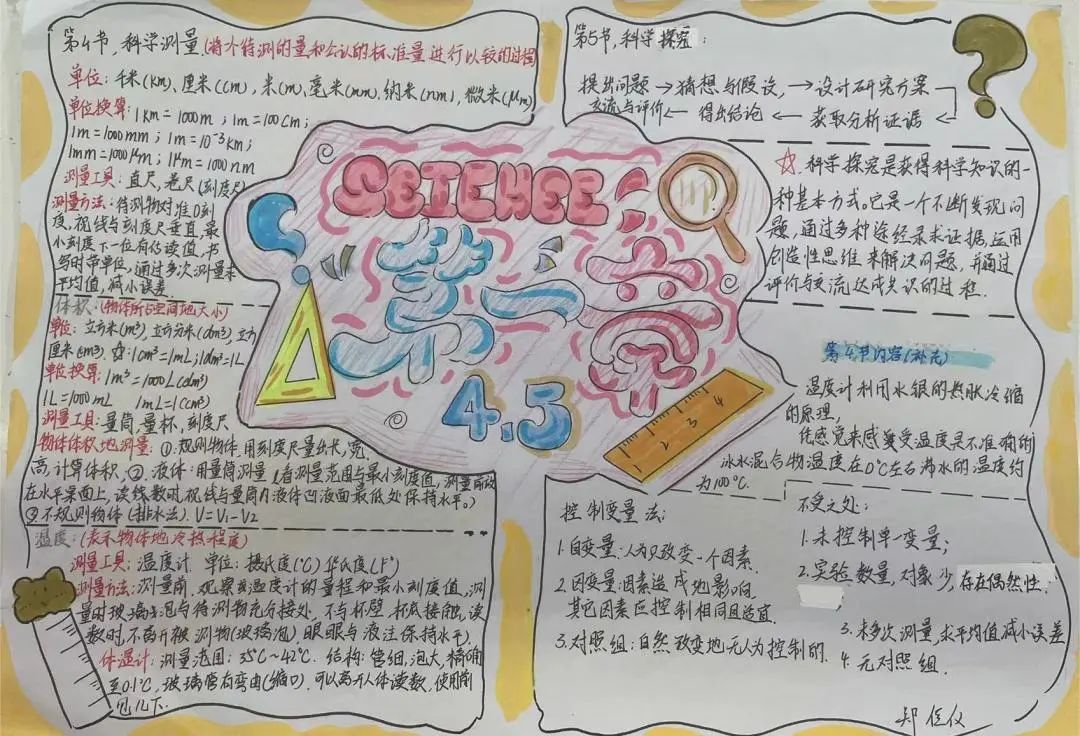 第4节,科学测量(将个待测的量和公认的标准量进行比较的过程)
单位:千米(km)、厘米(cm)、米(m)、毫米(mm)、纳米(nm)、微米(μm)
单位换算:1km=1000m;1m=100cm;
1m=1000mm;1m=10⁻³km;
1mm=1000μm;1μm=1000nm
测量工具:直尺,卷尺(刻度尺)
测量方法:待测物对准0刻
度,视线与刻度尺垂直,最
小刻度下一位有估读值,书
写时带单位,通过多次测量求
平均值,减小误差
体积:(物体所占空间地大小)
单位:立方米(m³),立方分米(dm³),立方
厘米(cm³).☆:1cm³=1mL;1dm³=1L
单位换算:1m³=1000L(dm³)
1L=1000mL 1mL=1(cm³)
测量工具:量筒,量杯,刻度尺
物体体积地测量:①.规则物体,用刻度尺量出长,宽,
高,计算体积,②.液体:用量筒测量(看测量范围与最小刻度值,测量时放
在水平桌面上,读数时,视线与量筒内液体凹液面最低处保持水平。)
③.不规则物体(排水法).V=V₁-V₂
温度:(表示物体地冷热程度)
测量工具:温度计 单位:摄氏度(℃)华氏度(℉)
测量方法:测量前,观察温度计的量程和最小刻度值,测
量时玻璃泡与待测物充分接处,不与杯壁,杯底接触,读
数时,不离开被测物(玻璃泡)眼眼与液注保持水平).
体温计:测量范围:35℃~42℃.结构:管细,泡大,精确
至0.1℃,玻璃管有弯曲(缩口).可以离开人体读数,使用前
甩几下.
SCIENCE:
第一章
4.5
1 2 3 4
第5节,科学探究:
提出问题→猜想与假设,→设计研究方案
交流与评价←得出结论←获取分析证据←
☆科学探究是获得科学知识的一
种基本方式。它是一个不断发现问
题,通过多种途经录求证据,运用
创造性思维来解决问题,并通过
评价与交流达成共识的过程.
第4节内容(补充)
温度计利用水银的热胀冷缩
的原理,
凭感觉来感受温度是不准确的
冰水混合物温度在0℃左右沸水的温度约
为100℃.
控制变量法:
1.自变量:人为只改变一个因素.
2.因变量:因素造成地影响,
其它因素应控制相同且适宜.
3.对照组:自然改变地无人为控制的.
不妥之处:
1.未控制单一变量;
2.实验数量,对象少,存在偶然性.
3.未多次测量,求平均值减小误差
4.无对照组.